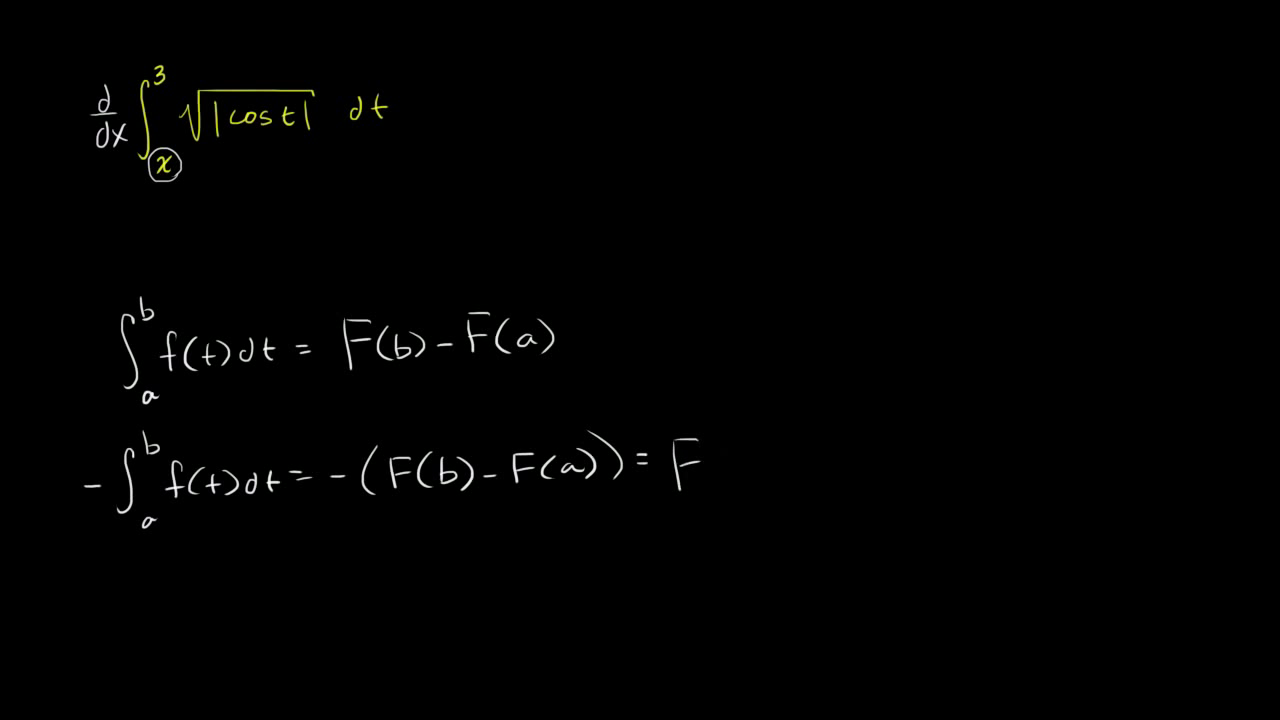 d/dx ∫_x^3 √|cos t| dt
∫_a^b f(t)dt = F(b) - F(a)
-∫_a^b f(t)dt = -(F(b) - F(a)) = F